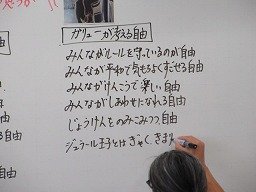 ガリューが考える自由
みんながルールを守っているのが自由
みんなが平和で気もちよくすごせる自由
みんながけんこうで楽しい自由
みんながしあわせになれる自由
じょうけんをのみこみつつ自由
ジェラール王子とはぎゃく きまり
由
自由